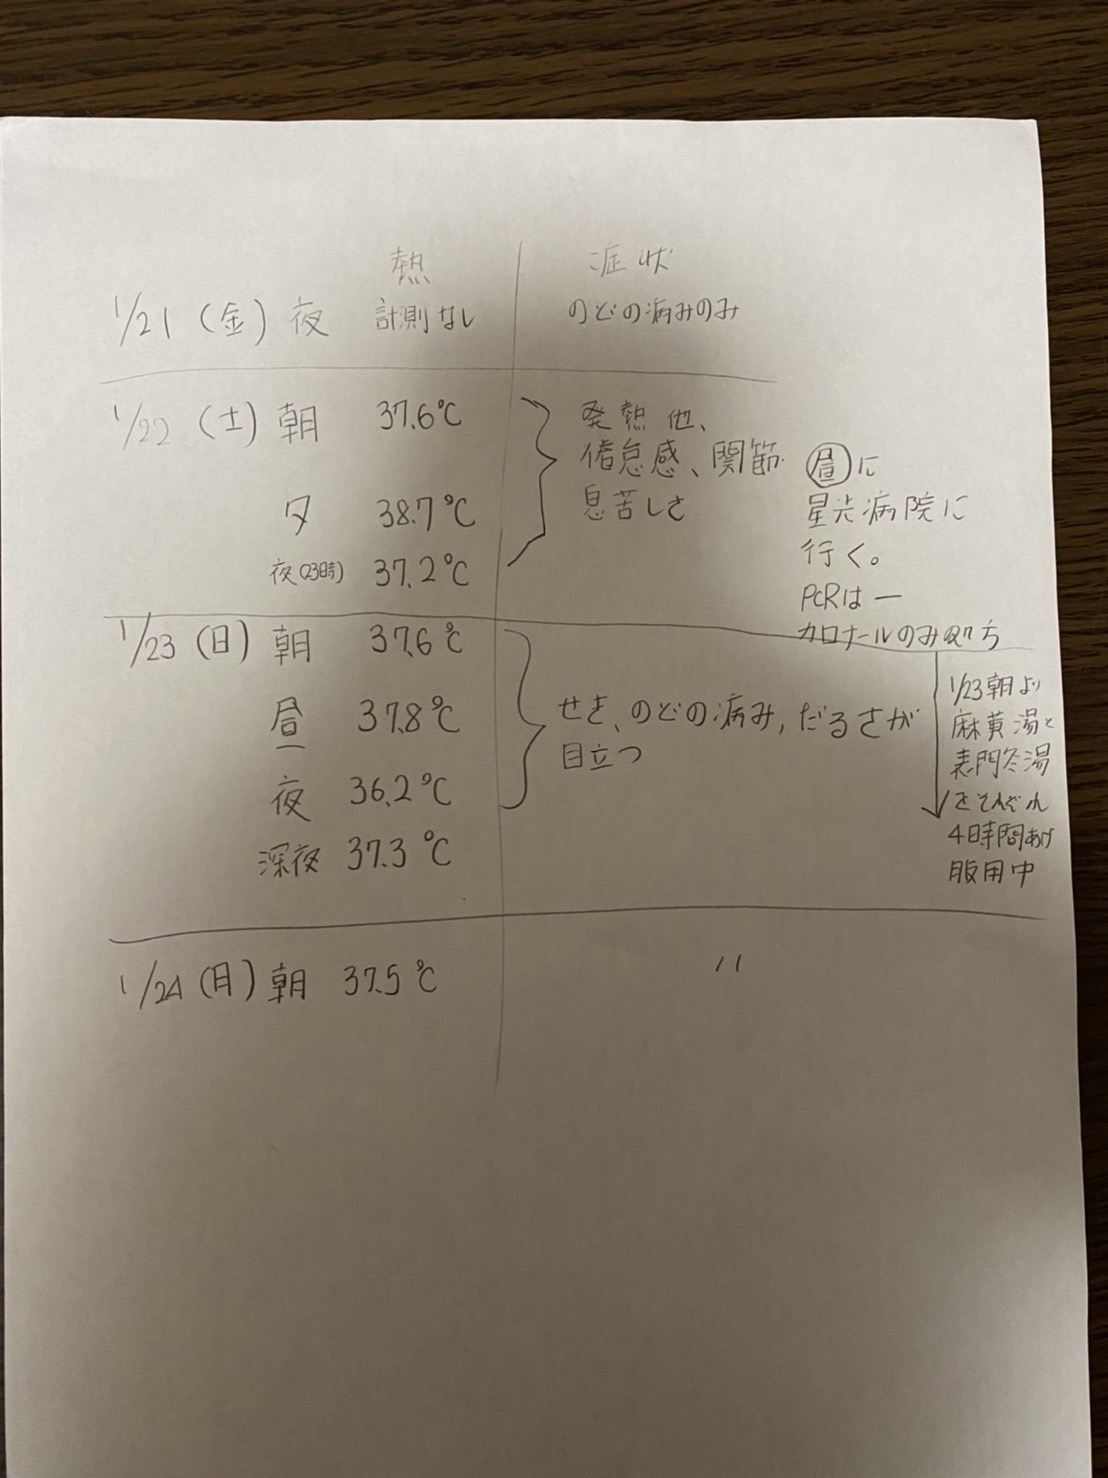 熱 症状
1/21(金)夜 計測なし のどの病みのみ
1/22(土)朝 37.6℃
夕 38.7℃
夜(23時) 37.2℃
発熱他、
倦怠感、関節
息苦しさ
昼に
星光病院に
行く。
PCRは一
カロナールのみ
1/23(日)朝 37.6℃
昼 37.8℃
夜 36.2℃
深夜 37.3℃
せき、のどの病み,だるさが
目立つ
1/23朝より
麻黄湯と
麦門冬湯
をそれぞれ
4時間あけ
服用中
1/24(月)朝 37.5℃ 〃